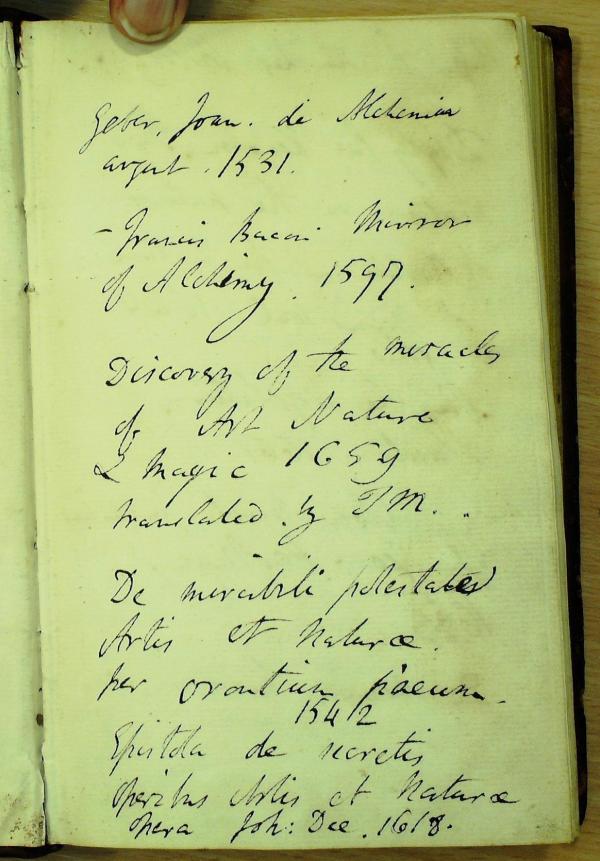 Geber, Joan. de Alchemia
argent. 1531.
- Francis Bacon Mirror
of Alchimy. 1597.
Discovery of the miracles
of Art Nature
& Magic 1659
translated by T M.
De mirabili potestate
Artis et Naturæ.
per orontium
1542
Epistola de secretis
operibus Artis et Naturæ
opera Joh: Dee. 1618.